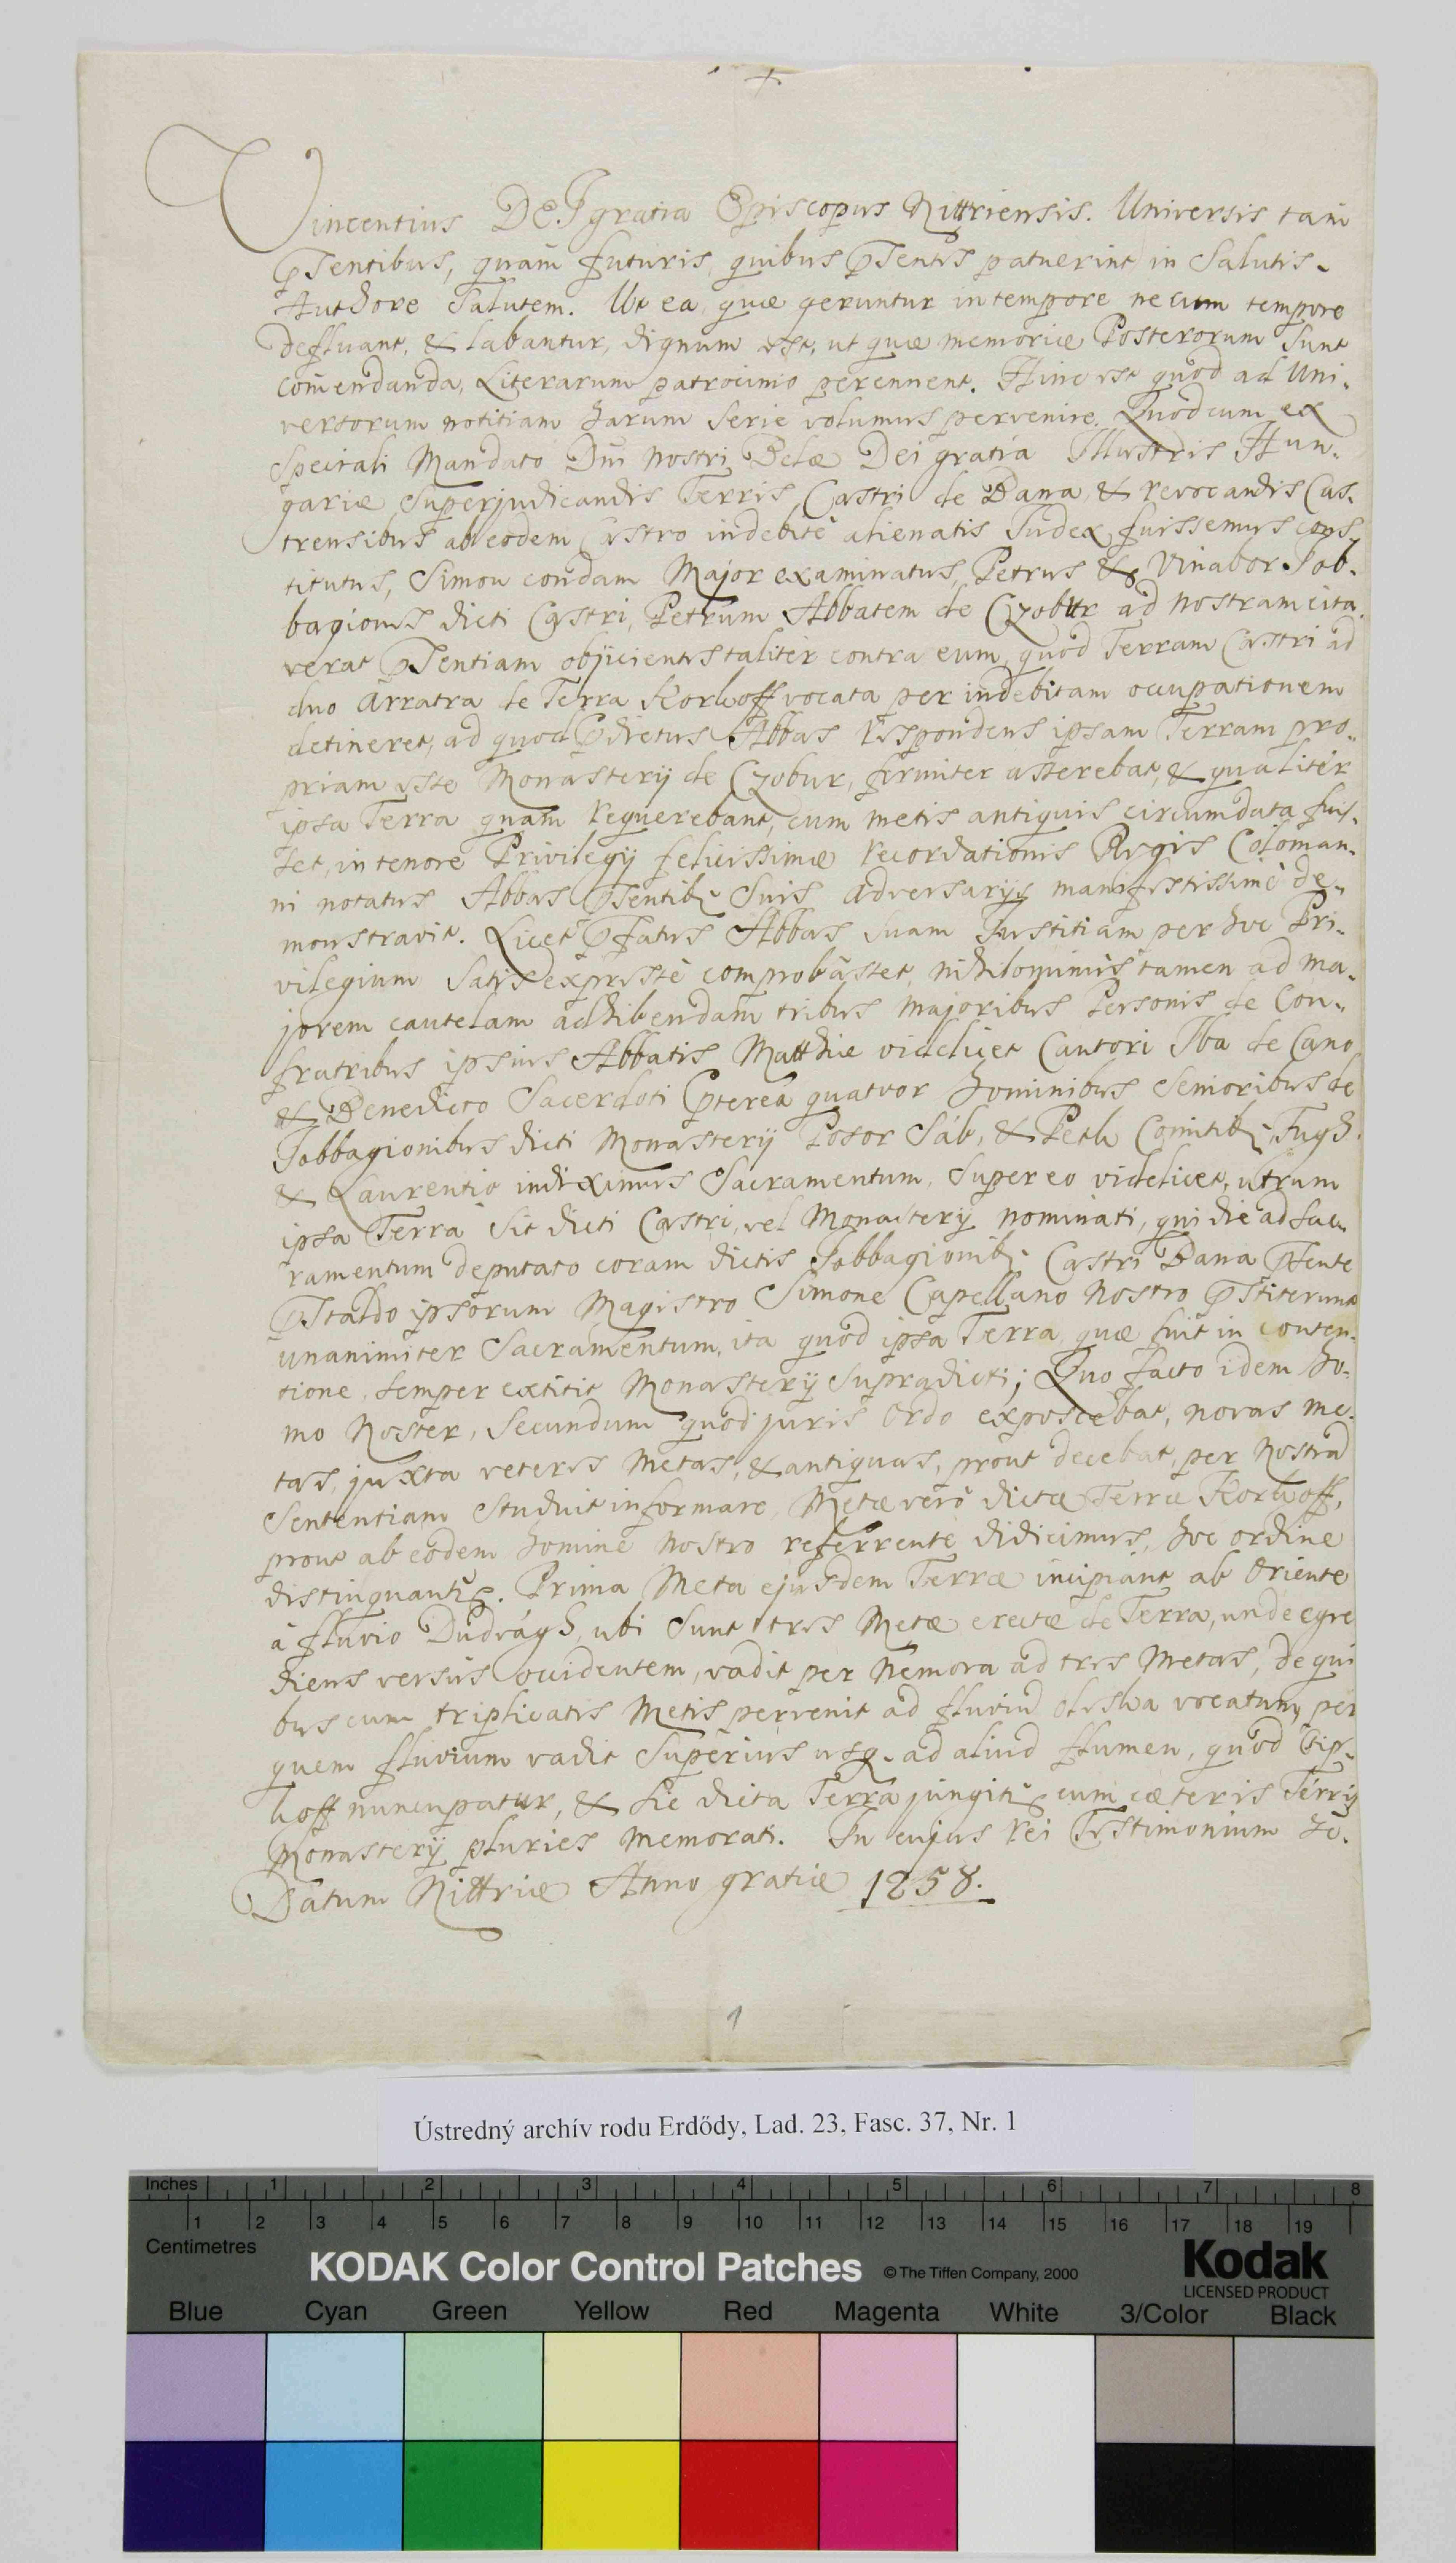 Vincentius DEI gratia Episcopus Nittriensis. Universis tam
pñsentibus, quam futuris, quibus pñsentes patuerint in Salutis
Authore Salutem. Ut ea, quæ geruntur in tempore ne cum tempore
defluant, & labantur, dignum est, ut quæ memoriæ Posterorum sunt
com̃endanda, Literarum patrocinio perennent. Hinc est quod ad Uni-
versorum notitiam harum serie volumus pervenire. Quod cum ex
Speciali Mandato Dñi Nostri Belæ Dei gratia Illustris Hun-
gariæ superjudicandis Terris Castri de Bana, & revocandis Cas-
trensibus ab eodem Castro indebitè alienatis Judex fuissemus cons-
titutus, Simon condam Major examinatus, Petrus & Vinabor Job-
bagiones dicti Castri, Petrum Abbatem de Czobur ad nostram cita
verat pñsentiam objicientes taliter contra eum, quod Terram Castri ad
duo Arratra de Terra Korlhoff vocata per indebitam occupationem
detineret, ad quod pdictus Abbas respondens ipsam Terram pro-
priam esse Monasterij de Czobur, firmiter asserebat, & qualiter
ipsa Terra quam requerebant, cum metis antiquis circumdata fuis-
set, in tenore Privilegij felicissimæ recordationis Regis Coloman-
ni notatus Abbas pñsentib9 suis adversarijs manifestissimè de-
monstravit. Licet pfatus Abbas suam Justitiam per hoc Pri-
vilegium satis expressè comprobasset, nihilominus tamen ad ma-
jorem cautelam adhibendam tribus majoribus Personis de Con-
fratribus ipsius Abbatis Matthiæ videlicet Cantori Iba de Cano
& Benedicto Sacerdoti pterea quatuor hominibus Senioribus de
Jobbagionibus dicti Monasterij Posor Sáb, & Peth Comitib9, Fugh
& Laurentio indiximus Sacramentum, super eo videlicet, utrum
ipsa Terra sit dicti Castri, vel Monasterij nominati, qui die ad Sac-
ramentum deputato coram dictis Jobbagionib9 Castri Bana pñsente
pristaldo ipsorum Magistro Simone Capellano Nostro pstiterunt
unanimiter Sacramentum, ita quod ipsa Terra, quæ fuit in conten-
tione, semper extitit Monasterij supradicti; Quo facto idem ho-
mo Noster, secundum quod juris ordo exposcebat, novas me-
tas, juxta veteres Metas, & antiquas, prout decebat, per Nostrã
Sententiam studuit informare, Metæ verò dictæ Terræ Korlhoff,
prout ab eodem homine Nostro referrente didicimus, hoc ordine
distinguantur. Prima Meta ejusdem Terræ incipiant ab Oriente
à fluvio Dudvágh, ubi sunt tres Metæ erectæ de Terra, unde egre
diens versus occidentem, vadit per Nemora ad tres Metas, de qui
bus cum triplicatis Metis pervenit ad fluviũ vocatum, per
quem fluvium vadit superius usq. ad aliud flumen, quod Gip-
hoff nuncupatur, & sic dicta Terra jungitur cum cæteris Terris
Monasterij pluries memorati. In cujus rei Testimonium &c.
Datum Nittriæ Anno gratiæ 1258.
1
Ústredný archív rodu Erdődy, Lad. 23, Fasc. 37, Nr. 1
Inches 1 2 3 4 5 6 7 8
1 2 3 4 5 6 7 8 9 10 11 12 13 14 15 16 17 18 19
Centimetres
KODAK Color Control Patches © The Tiffen Company, 2000 Kodak
LICENSED PRODUCT
Blue Cyan Green Yellow Red Magenta White 3/Color Black